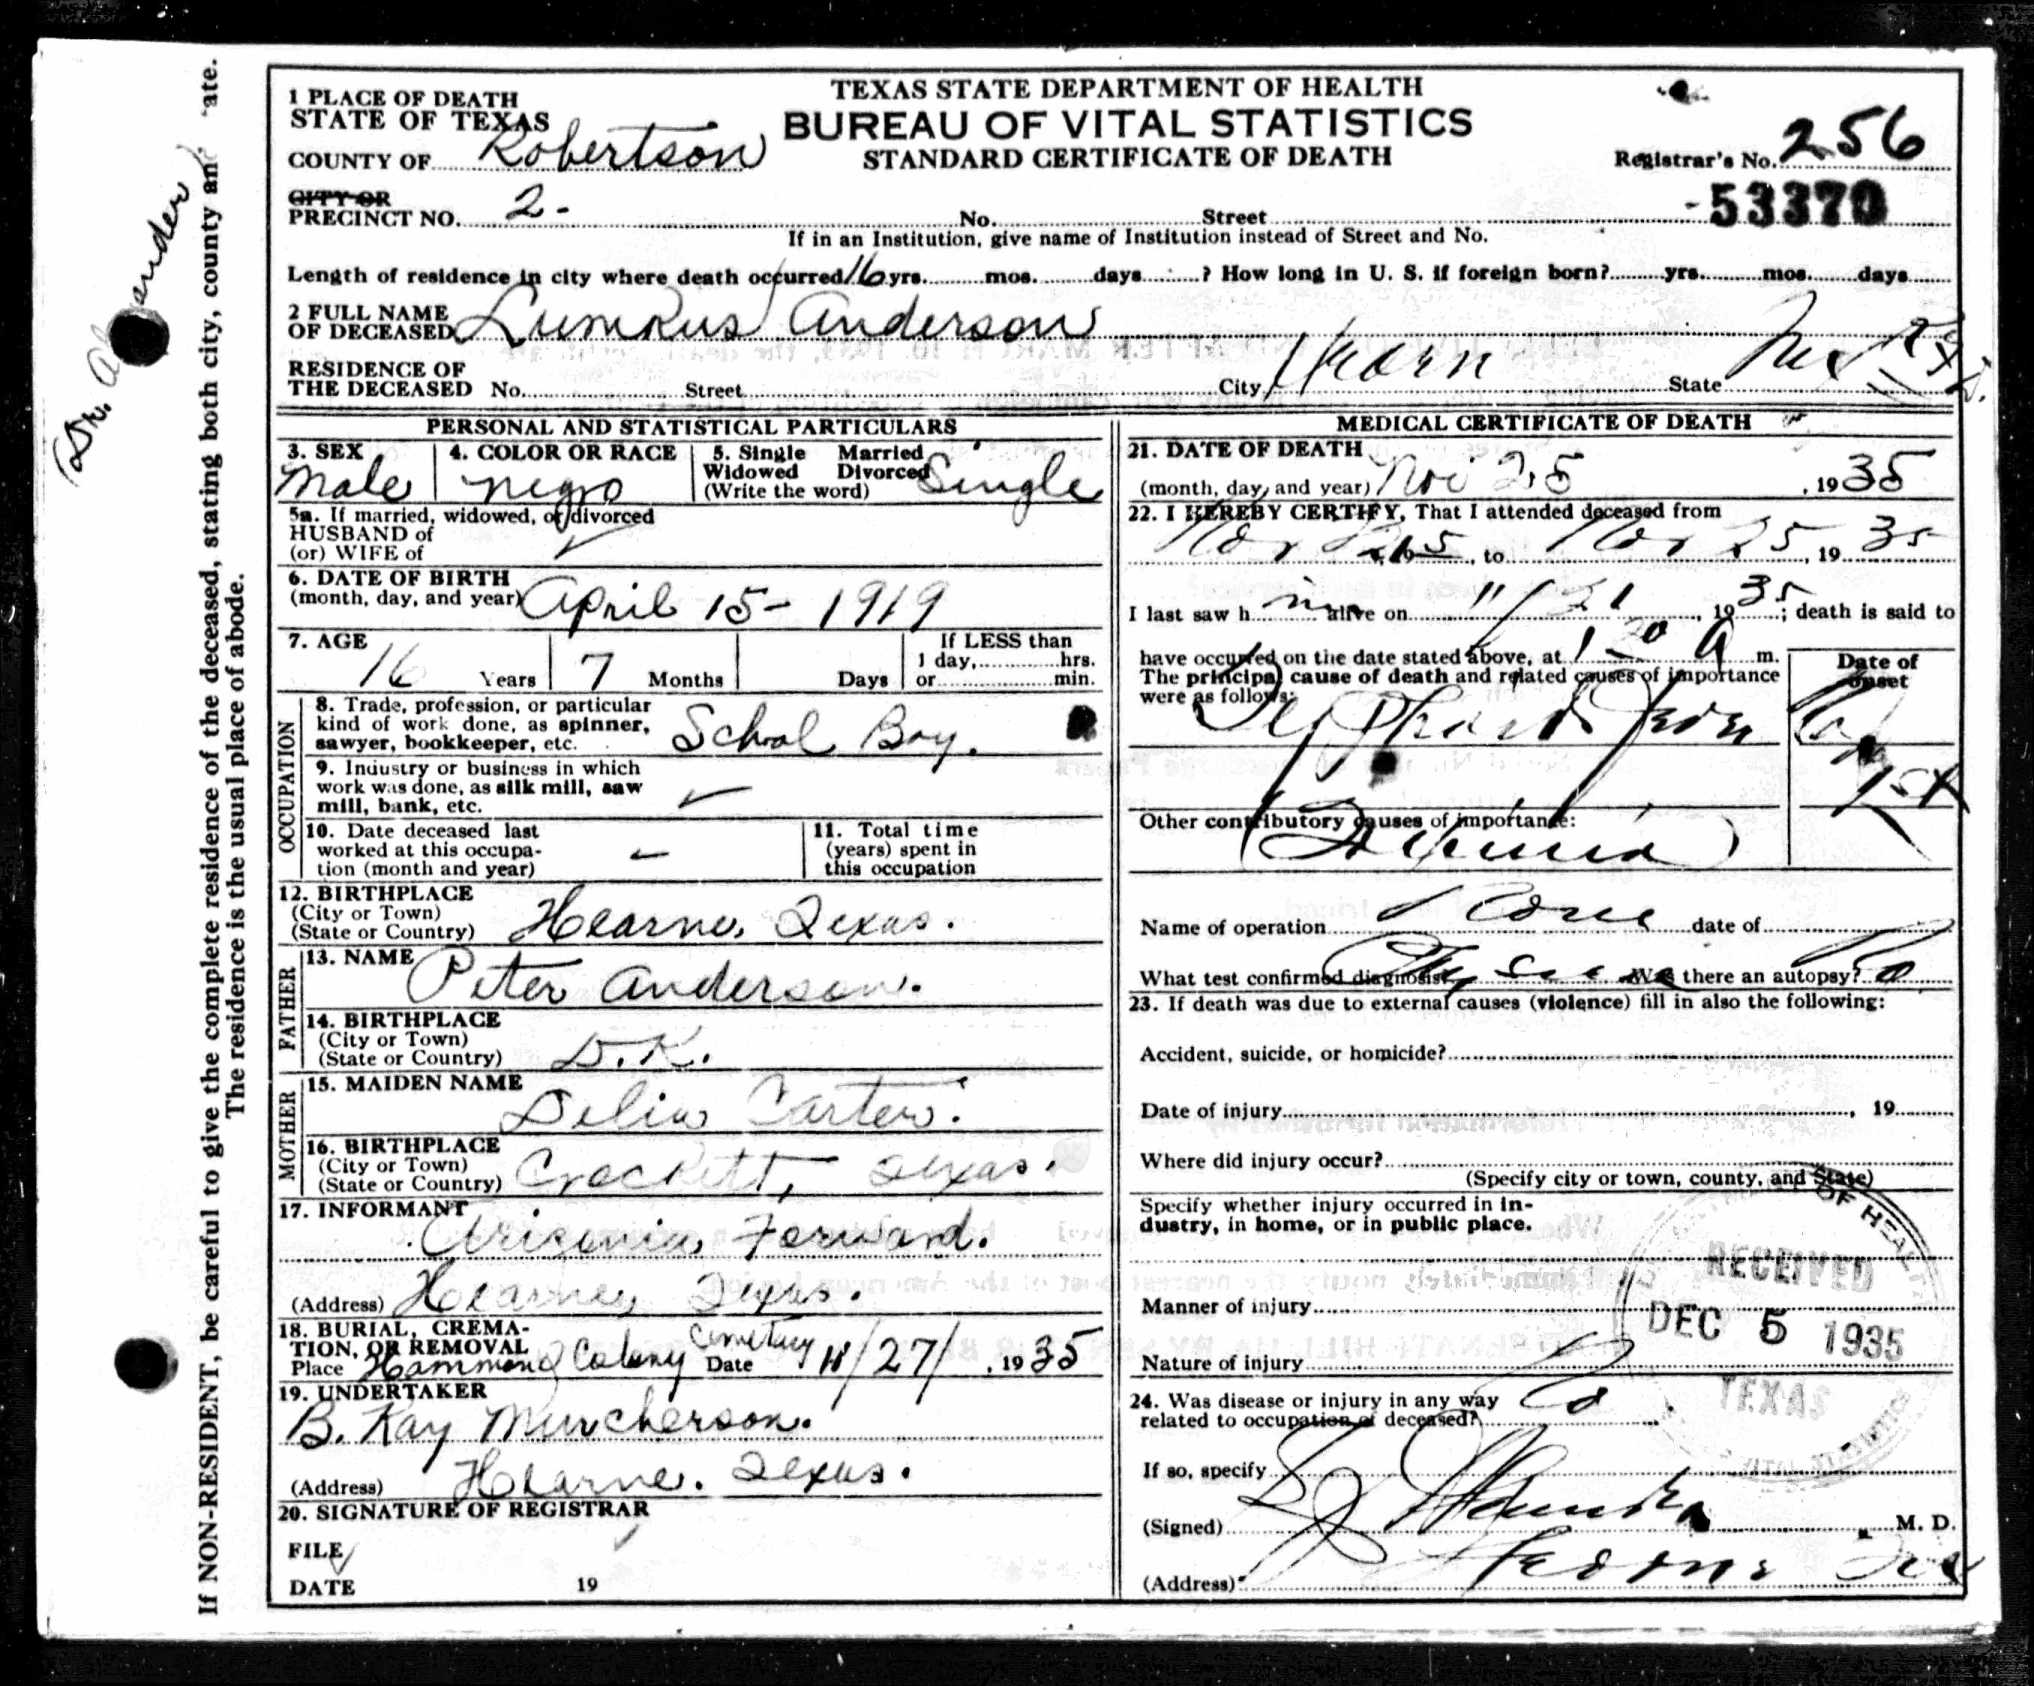 TEXAS STATE DEPARTMENT OF HEALTH
BUREAU OF VITAL STATISTICS
STANDARD CERTIFICATE OF DEATH
1 PLACE OF DEATH
STATE OF TEXAS
COUNTY OF Robertson
Registrar's No. 256
53370
CITY OR
PRECINCT NO. 2- No. Street
If in an Institution, give name of Institution instead of Street and No.
Length of residence in city where death occurred 16 yrs. mos. days ? How long in U. S. if foreign born? yrs. mos. days
2 FULL NAME
OF DECEASED Lumkus Anderson
RESIDENCE OF
THE DECEASED No. Street City Hearn State Tex
PERSONAL AND STATISTICAL PARTICULARS
3. SEX
Male
4. COLOR OR RACE
negro
5. Single Married
Widowed Divorced
(Write the word) Single
5a. If married, widowed, or divorced
HUSBAND of
(or) WIFE of
6. DATE OF BIRTH
(month, day, and year) April 15- 1919
7. AGE
16 Years 7 Months Days
If LESS than
1 day, hrs.
or min.
OCCUPATION
8. Trade, profession, or particular
kind of work done, as spinner,
sawyer, bookkeeper, etc. School Boy.
9. Industry or business in which
work was done, as silk mill, saw
mill, bank, etc.
10. Date deceased last
worked at this occupa-
tion (month and year)
11. Total time
(years) spent in
this occupation
12. BIRTHPLACE
(City or Town)
(State or Country) Hearne, Texas.
FATHER
13. NAME Peter Anderson.
14. BIRTHPLACE
(City or Town)
(State or Country) D.K.
MOTHER
15. MAIDEN NAME
Delia Carter.
16. BIRTHPLACE
(City or Town)
(State or Country) Crockett, Texas.
17. INFORMANT
Forward.
(Address) Hearne, Texas.
18. BURIAL, CREMA-
TION, OR REMOVAL
Place Hammond Colony Cemetary Date 11/27/, 1935
19. UNDERTAKER
B. Kay Murcherson.
(Address) Hearne. Texas.
20. SIGNATURE OF REGISTRAR
FILE
DATE 19
MEDICAL CERTIFICATE OF DEATH
21. DATE OF DEATH
(month, day, and year) Nov 25, 1935
22. I HEREBY CERTIFY, That I attended deceased from
Nov to Nov 25, 1935
I last saw him alive on 11/21, 1935; death is said to
have occurred on the date stated above, at 1 30 A m.
The principal cause of death and related causes of importance
were as follows:
Date of
onset
Typhoid Fever
Other contributory causes of importance:
Name of operation None date of
What test confirmed diagnosis? Was there an autopsy? No
23. If death was due to external causes (violence) fill in also the following:
Accident, suicide, or homicide?
Date of injury , 19
Where did injury occur?
(Specify city or town, county, and State)
Specify whether injury occurred in in-
dustry, in home, or in public place.
Manner of injury
Nature of injury
24. Was disease or injury in any way
related to occupation of deceased? No
If so, specify
(Signed) M. D.
(Address) Hearne Tex
OF HEALTH
RECEIVED
DEC 5 1935
TEXAS
If NON-RESIDENT, be careful to give the complete residence of the deceased, stating both city, county and
The residence is the usual place of abode.